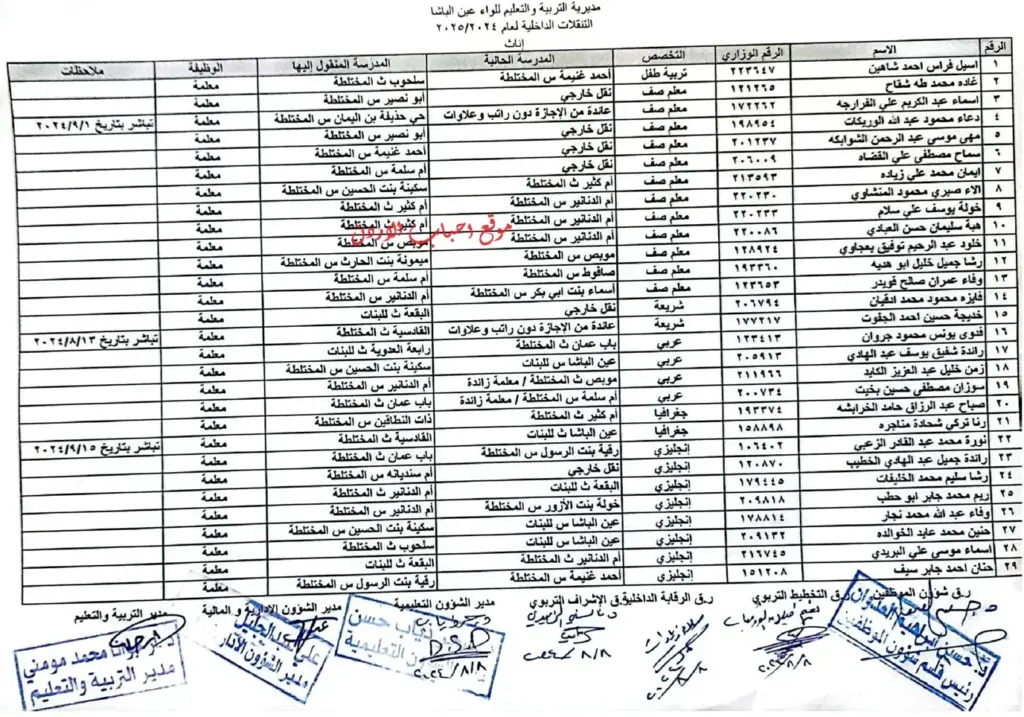 مديرية التربية والتعليم للواء عين الباشا
التنقلات الداخلية لعام ٢٠٢٥/٢٠٢٤
إناث
الرقم الاسم الرقم الوزاري التخصص المدرسة الحالية المدرسة المنقول إليها الوظيفة ملاحظات
١ اسيل فراس احمد شاهين ٢٢٣٦٤٧ تربية طفل أحمد غنيمة س المختلطة سلحوب ث المختلطة معلمة
٢ غاده محمد طه شقاح ١٢١٢٦٥ معلم صف نقل خارجي أبو نصير س المختلطة معلمة
٣ اسماء عبد الكريم علي القرارجه ١٧٢٢٦٢ معلم صف عائدة من الإجازة دون راتب وعلاوات حي حذيفة بن اليمان س المختلطة معلمة تباشر بتاريخ ٢٠٢٤/٩/١
٤ دعاء محمود عبد الله الوريكات ١٩٨٩٥٤ معلم صف نقل خارجي أبو نصير س المختلطة معلمة
٥ مهى موسى عبد الرحمن الشوابكه ٢٠١٢٣٧ معلم صف نقل خارجي أحمد غنيمة س المختلطة معلمة
٦ سماح مصطفى علي القضاه ٢٠٦٠٠٩ معلم صف نقل خارجي أم سلمة س المختلطة معلمة
٧ ايمان محمد علي زياده ٢١٣٥٩٣ معلم صف أم كثير ث المختلطة سكينة بنت الحسين س المختلطة معلمة
٨ الاء صبري محمود المنشاوي ٢٢٠٢٣٠ معلم صف أم الدنانير س المختلطة أم كثير ث المختلطة معلمة
٩ خولة يوسف علي سلام ٢٢٠٢٣٣ معلم صف أم الدنانير س المختلطة أم كثير ث المختلطة معلمة
١٠ هبة سليمان حسن العبادي ٢٢٠٠٨٦ معلم صف أم الدنانير س المختلطة موبص س المختلطة معلمة
١١ خلود عبد الرحيم توفيق بعجاوي ١٢٨٩٢٤ معلم صف موبص س المختلطة ميمونة بنت الحارث س المختلطة معلمة
١٢ رشا جميل خليل ابو هديه ١٩٣٣٦٠ معلم صف صافوط س المختلطة أم سلمة س المختلطة معلمة
١٣ وفاء عمران صالح قويدر ١٢٣٦٥٣ معلم صف أسماء بنت ابي بكر س المختلطة أم الدنانير س المختلطة معلمة
١٤ فايزه محمود محمد ادقيان ٢٠٦٧٩٤ شريعة نقل خارجي البقعة ث للبنات معلمة
١٥ خديجة حسين احمد الجفوت ١٧٧٢١٧ شريعة عائدة من الإجازة دون راتب وعلاوات القادسية ث المختلطة معلمة تباشر بتاريخ ٢٠٢٤/٨/١٣
١٦ فدوى يونس محمود جروان ١٢٣٤١٣ عربي باب عمان ث المختلطة رابعة العدوية ث للبنات معلمة
١٧ رائدة شفيق يوسف عبد الهادي ٢٠٥٩١٣ عربي عين الباشا س للبنات سكينة بنت الحسين س المختلطة معلمة
١٨ زمن خليل عبد العزيز الكايد ٢١١٩٦٦ عربي موبص ث المختلطة / معلمة زائدة أم الدنانير س المختلطة معلمة
١٩ سوزان مصطفى حسين بخيت ٢٠٠٧٣٤ عربي أم سلمة س المختلطة / معلمة زائدة باب عمان ث المختلطة معلمة
٢٠ صباح عبد الرزاق حامد الخرابشه ١٩٣٣٧٤ جغرافيا أم كثير ث المختلطة ذات النطاقين س المختلطة معلمة
٢١ رنا تركي شحادة مناجره ١٥٨٨٩٨ جغرافيا عين الباشا ث للبنات القادسية ث المختلطة معلمة
٢٢ نورة محمد عبد القادر الزعبي ١٠٦٤٠٢ إنجليزي رقية بنت الرسول س المختلطة باب عمان ث المختلطة معلمة تباشر بتاريخ ٢٠٢٤/٩/١٥
٢٣ رائدة جميل عبد الهادي الخطيب ١٢٠٨٧٠ إنجليزي نقل خارجي أم سنديانه س المختلطة معلمة
٢٤ رشا سليم محمد الخليفات ١٧٩٤٤٥ إنجليزي البقعة ث للبنات أم الدنانير ث المختلطة معلمة
٢٥ ريم محمد جابر ابو حطب ٢٠٩٨١٨ إنجليزي خولة بنت الأزور س المختلطة أم الدنانير س المختلطة معلمة
٢٦ وفاء عبد الله محمد نجار ١٧٨٨١٤ إنجليزي عين الباشا س للبنات سكينة بنت الحسين س المختلطة معلمة
٢٧ حنين محمد عايد الخوالده ٢٠٩١٣٢ إنجليزي عين الباشا س للبنات سلحوب ث المختلطة معلمة
٢٨ اسماء موسى علي البريدي ٢١٦٧٤٥ إنجليزي أم الدنانير ث المختلطة البقعة ث للبنات معلمة
٢٩ حنان احمد جابر سيف ١٥١٢٠٨ إنجليزي أحمد غنيمة س المختلطة رقية بنت الرسول س المختلطة معلمة
موقع احباب الاردن
ر.ق شؤون الموظفين ر.ق التخطيط التربوي ر.ق الرقابة الداخلية ر.ق الإشراف التربوي مدير الشؤون التعليمية مدير الشؤون الإدارية و المالية مدير التربية والتعليم
حسين ابراهيم العدوان
رئيس قسم شؤون الموظفين
ذياب حسن
الشؤون التعليمية
٢٠٢٤/٨/٨
علي عبد الجليل
مدير الشؤون الإدار
محمد مومني
مدير التربية والتعليم